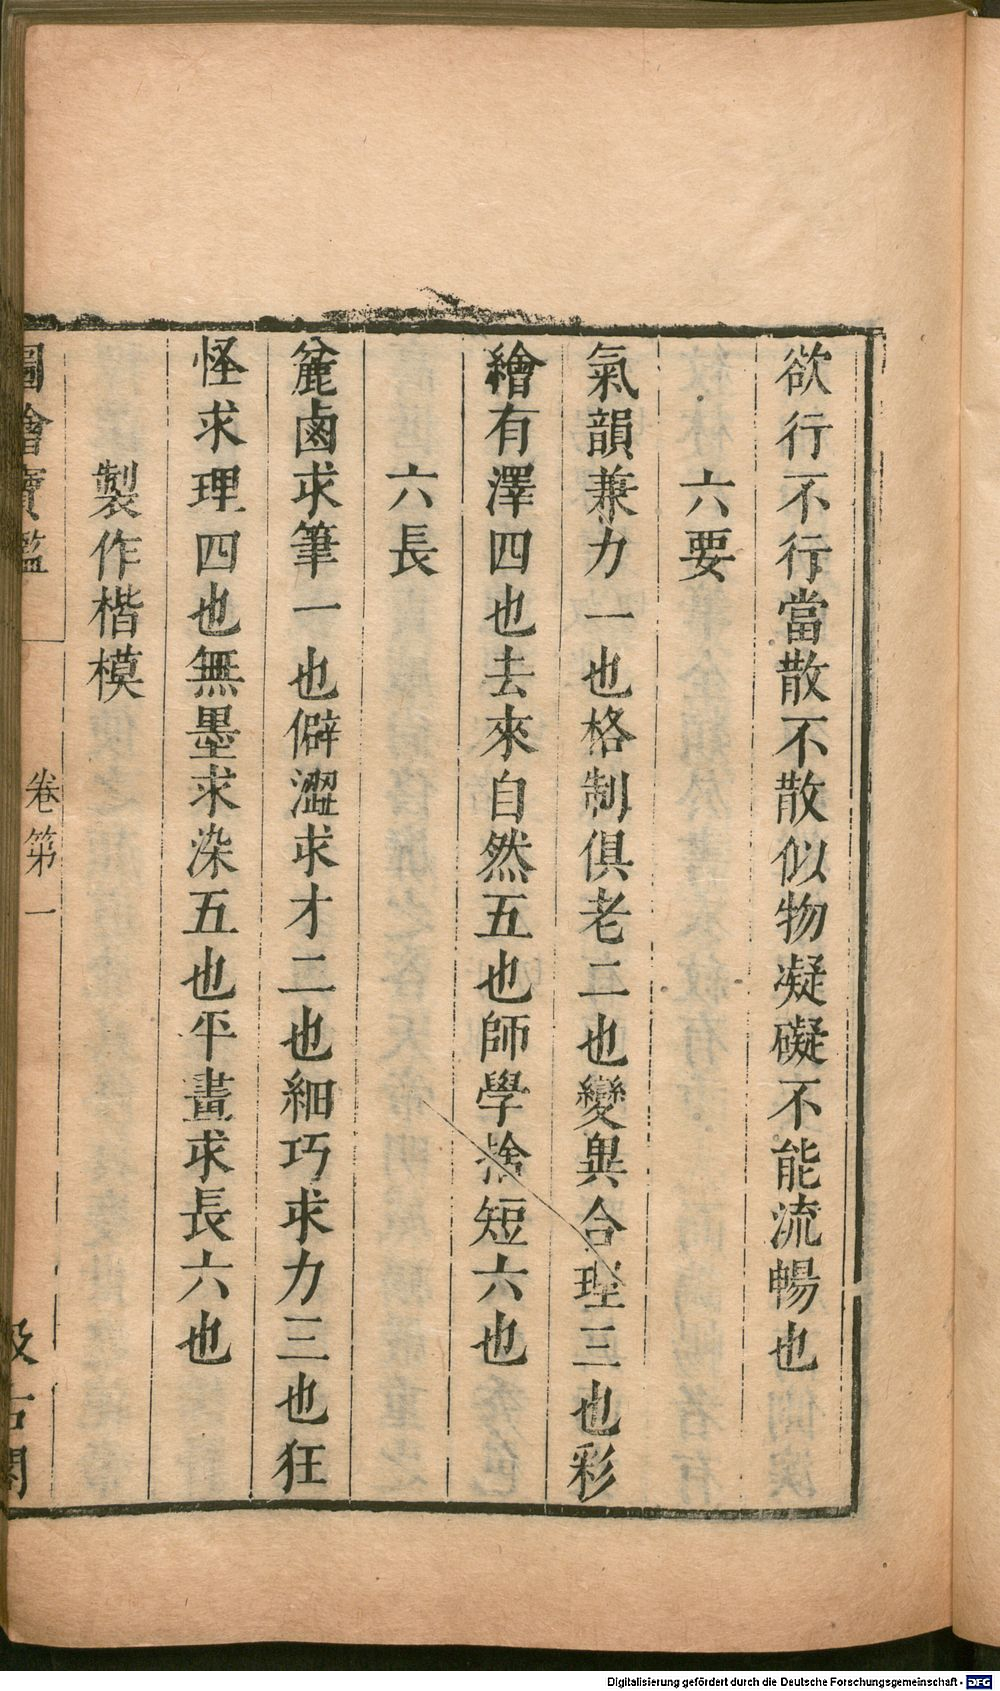 欲行不行當散不散似物凝礙不能流暢也
六要
氣韻兼力一也格制俱老二也變異合理三也彩
繪有澤四也去來自然五也師學捨短六也
六長
麄鹵求筆一也僻澀求才二也細巧求力三也狂
怪求理四也無墨求染五也平畫求長六也
製作楷模
圖繪寶鑑 卷第一 汲古閣
Digitalisierung gefördert durch die Deutsche Forschungsgemeinschaft - DFG